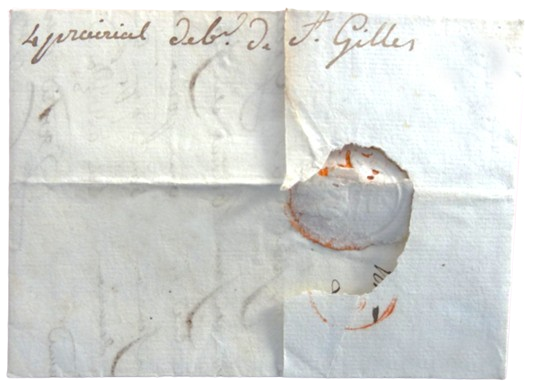 4 prairial deb.r de St. Gilles